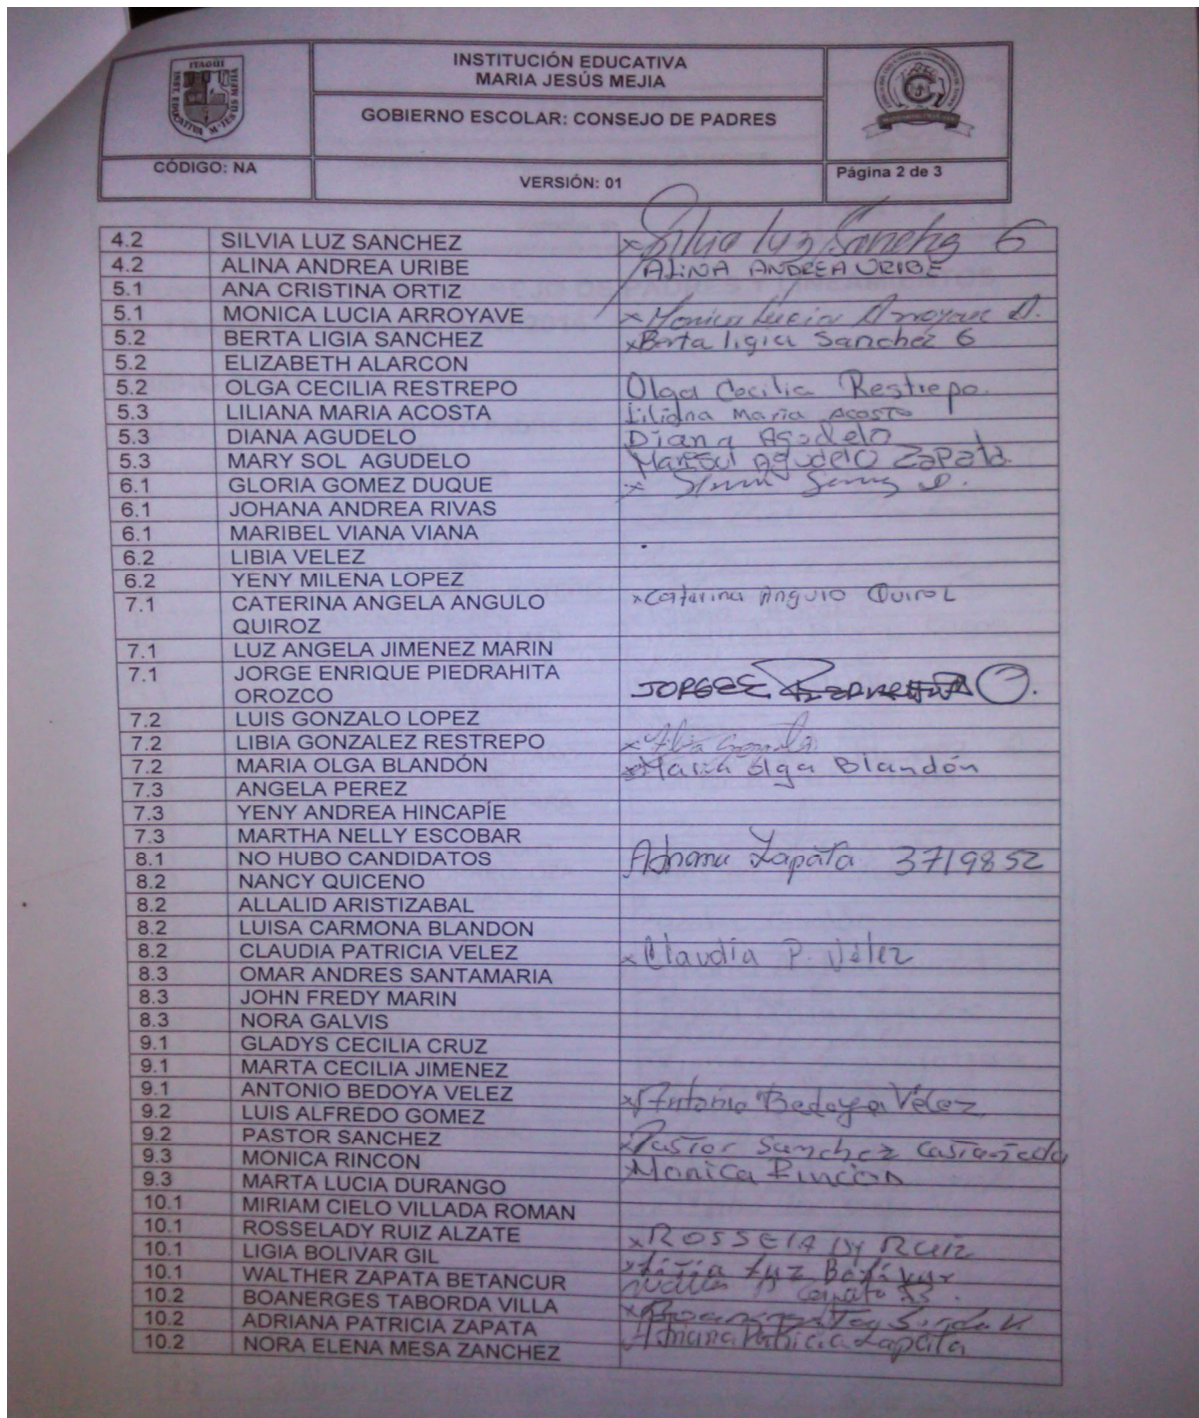 ITAGUI
INST. EDUCATIVA Mª JESUS MEJIA
INSTITUCIÓN EDUCATIVA
MARIA JESÚS MEJIA
GOBIERNO ESCOLAR: CONSEJO DE PADRES
CÓDIGO: NA
VERSIÓN: 01
Página 2 de 3
4.2 SILVIA LUZ SANCHEZ xSilvia luz Sanchz G
4.2 ALINA ANDREA URIBE ALINA ANDREA URIBE
5.1 ANA CRISTINA ORTIZ
5.1 MONICA LUCIA ARROYAVE x Monica Lucia Arroyave A.
5.2 BERTA LIGIA SANCHEZ xBerta ligia Sanchez G
5.2 ELIZABETH ALARCON
5.2 OLGA CECILIA RESTREPO Olga Cecilia Restrepo.
5.3 LILIANA MARIA ACOSTA Liliana Maria Acosta
5.3 DIANA AGUDELO Diana Agudelo
5.3 MARY SOL AGUDELO Marisol Agudelo Zapata.
6.1 GLORIA GOMEZ DUQUE x
6.1 JOHANA ANDREA RIVAS
6.1 MARIBEL VIANA VIANA
6.2 LIBIA VELEZ
6.2 YENY MILENA LOPEZ
7.1 CATERINA ANGELA ANGULO xCaterina Angulo Quiroz
QUIROZ
7.1 LUZ ANGELA JIMENEZ MARIN
7.1 JORGE ENRIQUE PIEDRAHITA
OROZCO JORGE E. PIEDRAHITA O.
7.2 LUIS GONZALO LOPEZ
7.2 LIBIA GONZALEZ RESTREPO x
7.2 MARIA OLGA BLANDÓN xMaria Olga Blandón
7.3 ANGELA PEREZ
7.3 YENY ANDREA HINCAPÍE
7.3 MARTHA NELLY ESCOBAR
8.1 NO HUBO CANDIDATOS Adriana Zapata 3719852
8.2 NANCY QUICENO
8.2 ALLALID ARISTIZABAL
8.2 LUISA CARMONA BLANDON
8.2 CLAUDIA PATRICIA VELEZ xClaudia P. Vélez
8.3 OMAR ANDRES SANTAMARIA
8.3 JOHN FREDY MARIN
8.3 NORA GALVIS
9.1 GLADYS CECILIA CRUZ
9.1 MARTA CECILIA JIMENEZ
9.1 ANTONIO BEDOYA VELEZ xAntonio Bedoya Vélez
9.2 LUIS ALFREDO GOMEZ
9.2 PASTOR SANCHEZ xPastor Sanchez Castañeda
9.3 MONICA RINCON xMonica Rincon
9.3 MARTA LUCIA DURANGO
10.1 MIRIAM CIELO VILLADA ROMAN
10.1 ROSSELADY RUIZ ALZATE xROSSELADY RUIZ
10.1 LIGIA BOLIVAR GIL xLigia Luz Bolívar
10.1 WALTHER ZAPATA BETANCUR
10.2 BOANERGES TABORDA VILLA x
10.2 ADRIANA PATRICIA ZAPATA Adriana Patricia Zapata
10.2 NORA ELENA MESA ZANCHEZ